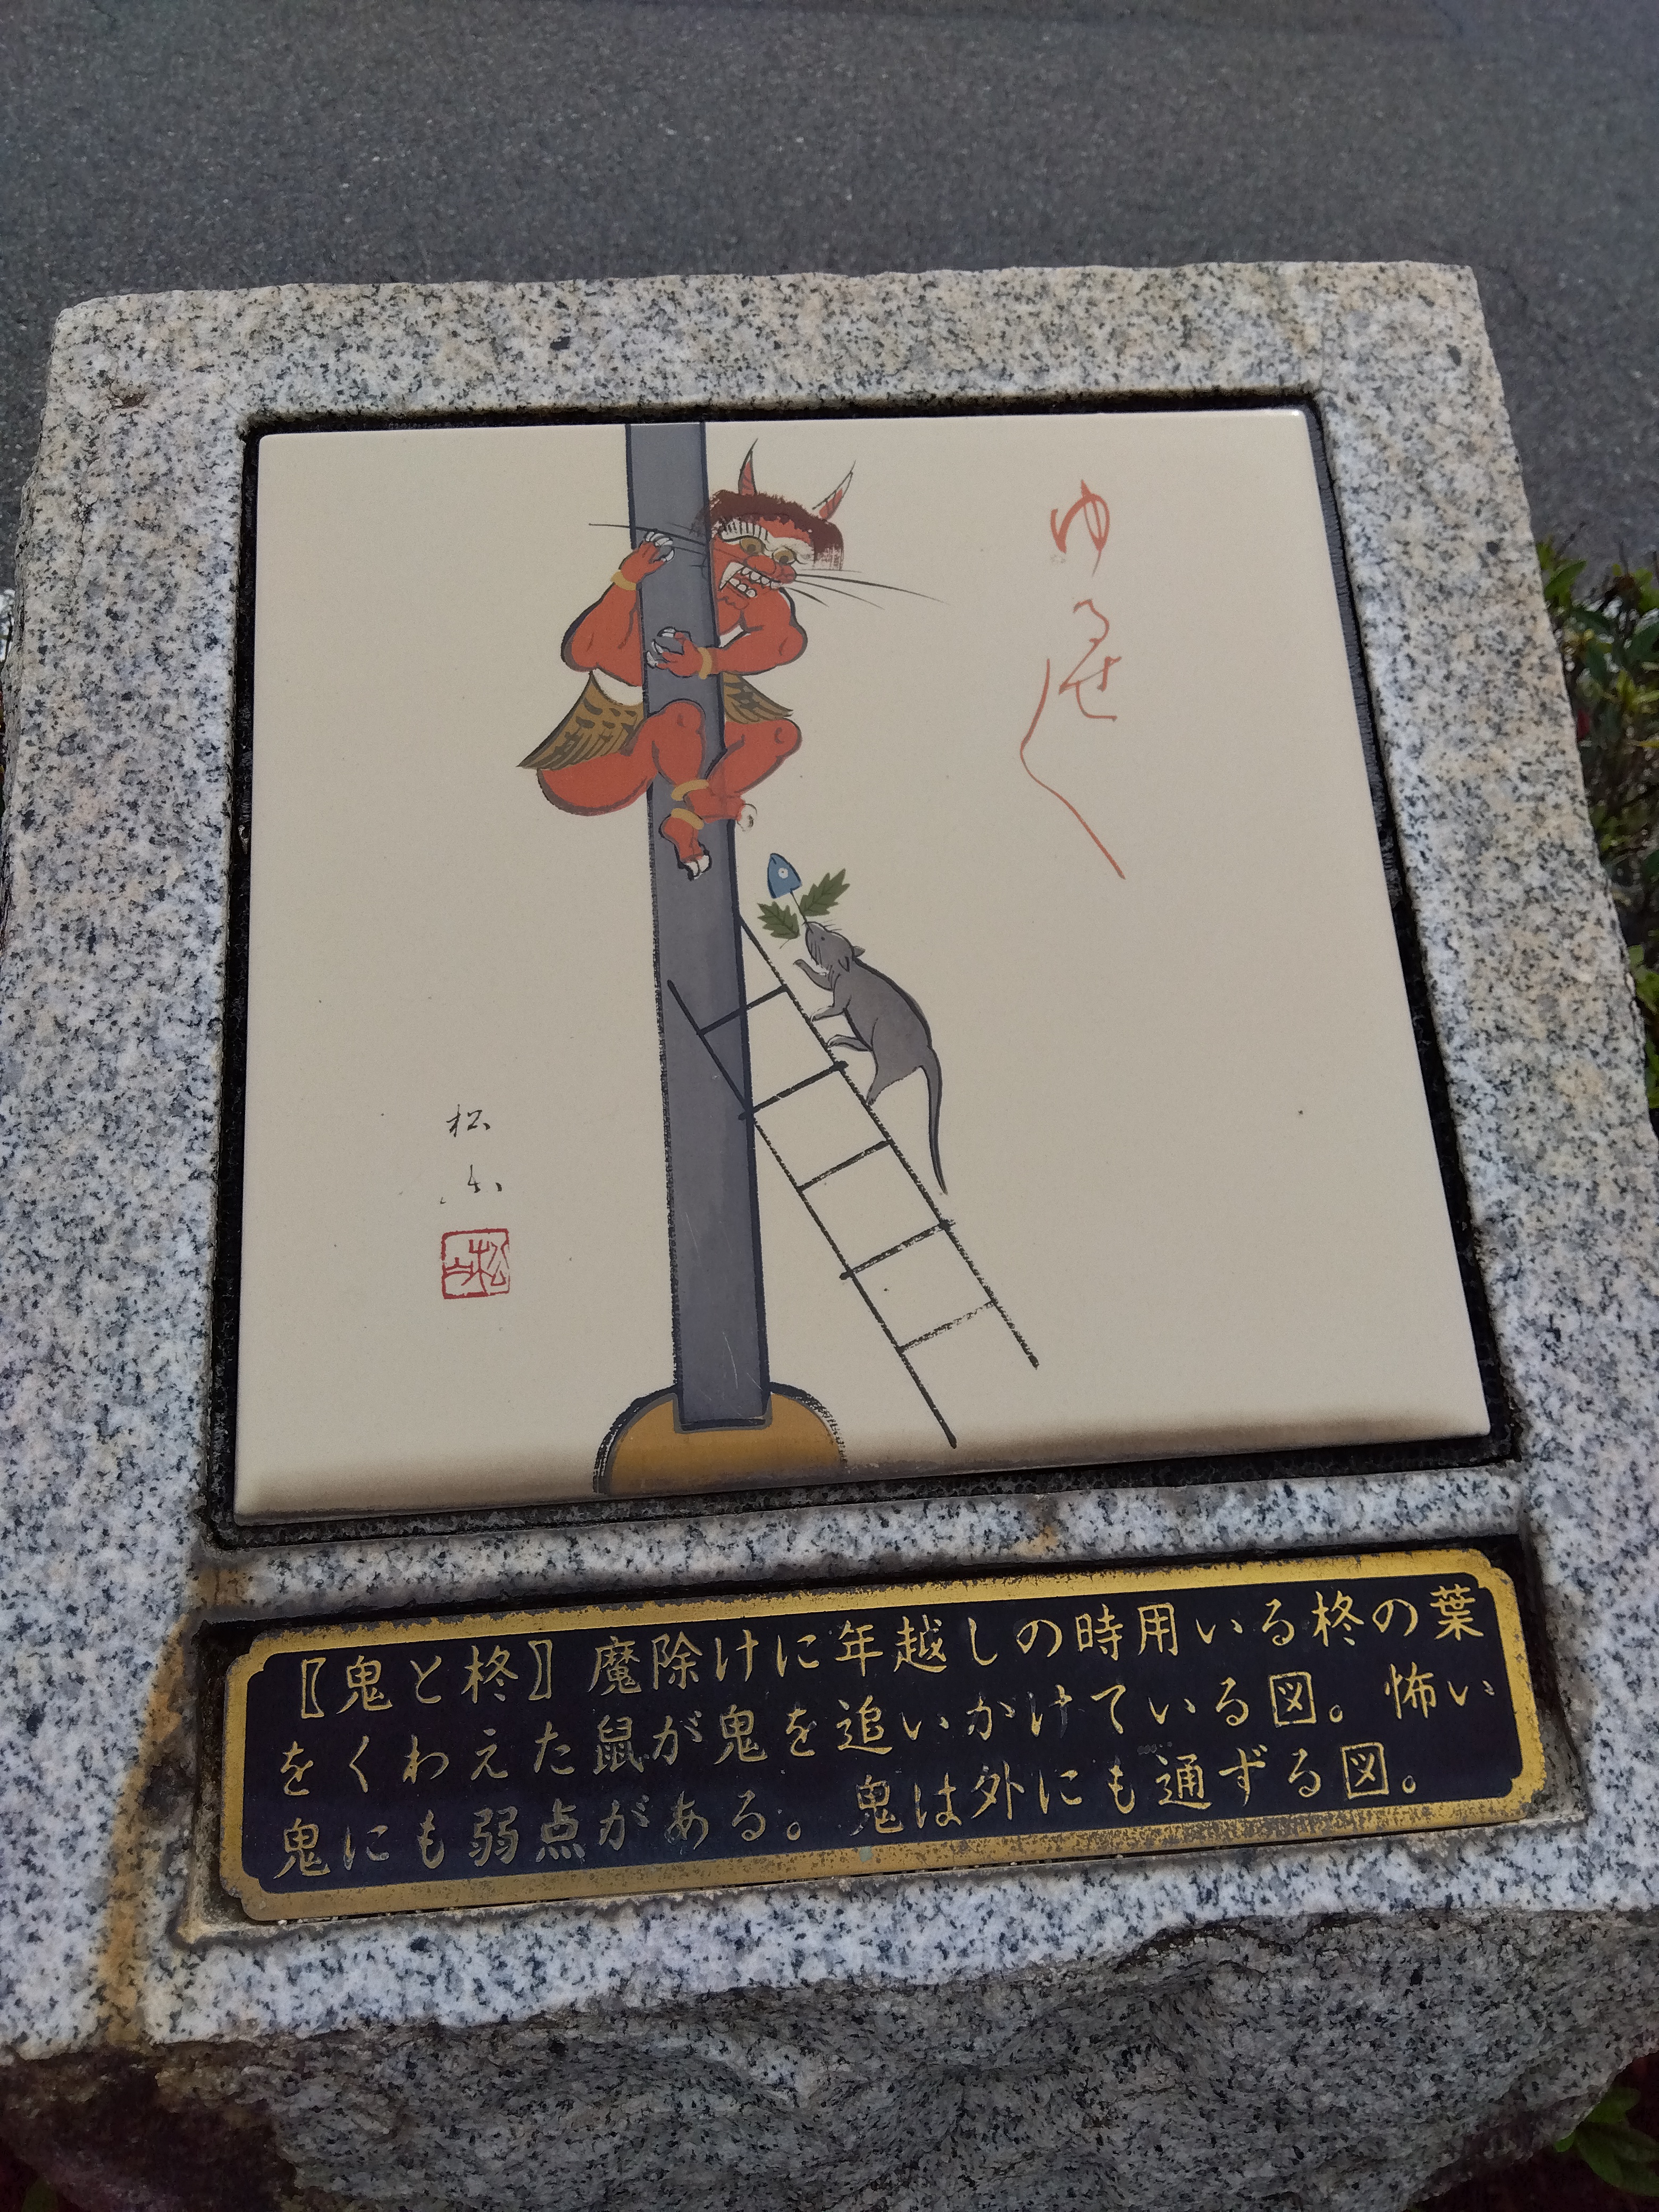 ゆるせ
松
〖鬼と柊〗魔除けに年越しの時用いる柊の葉
をくわえた鼠が鬼を追いかけている図。怖い
鬼にも弱点がある。鬼は外にも通ずる図。